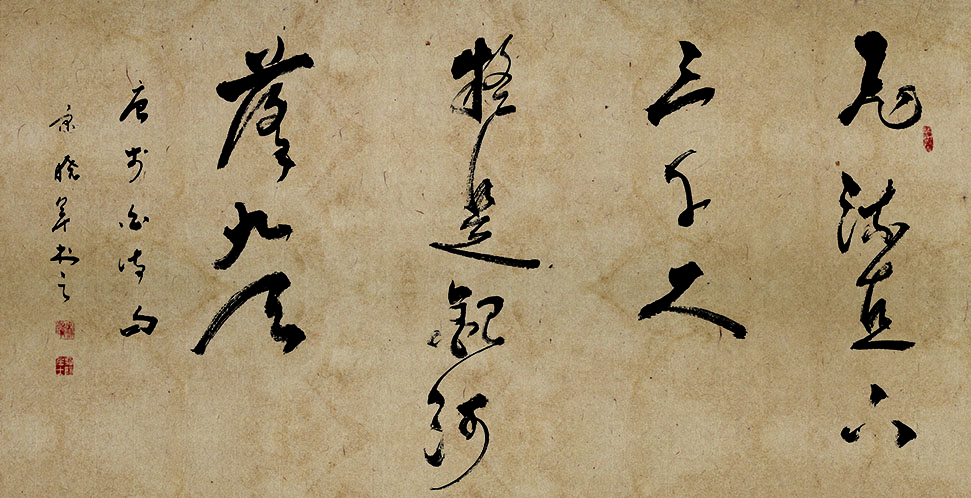 飛流直下
三千尺
疑是銀河
落九天
唐李白詩句
曉軍書之